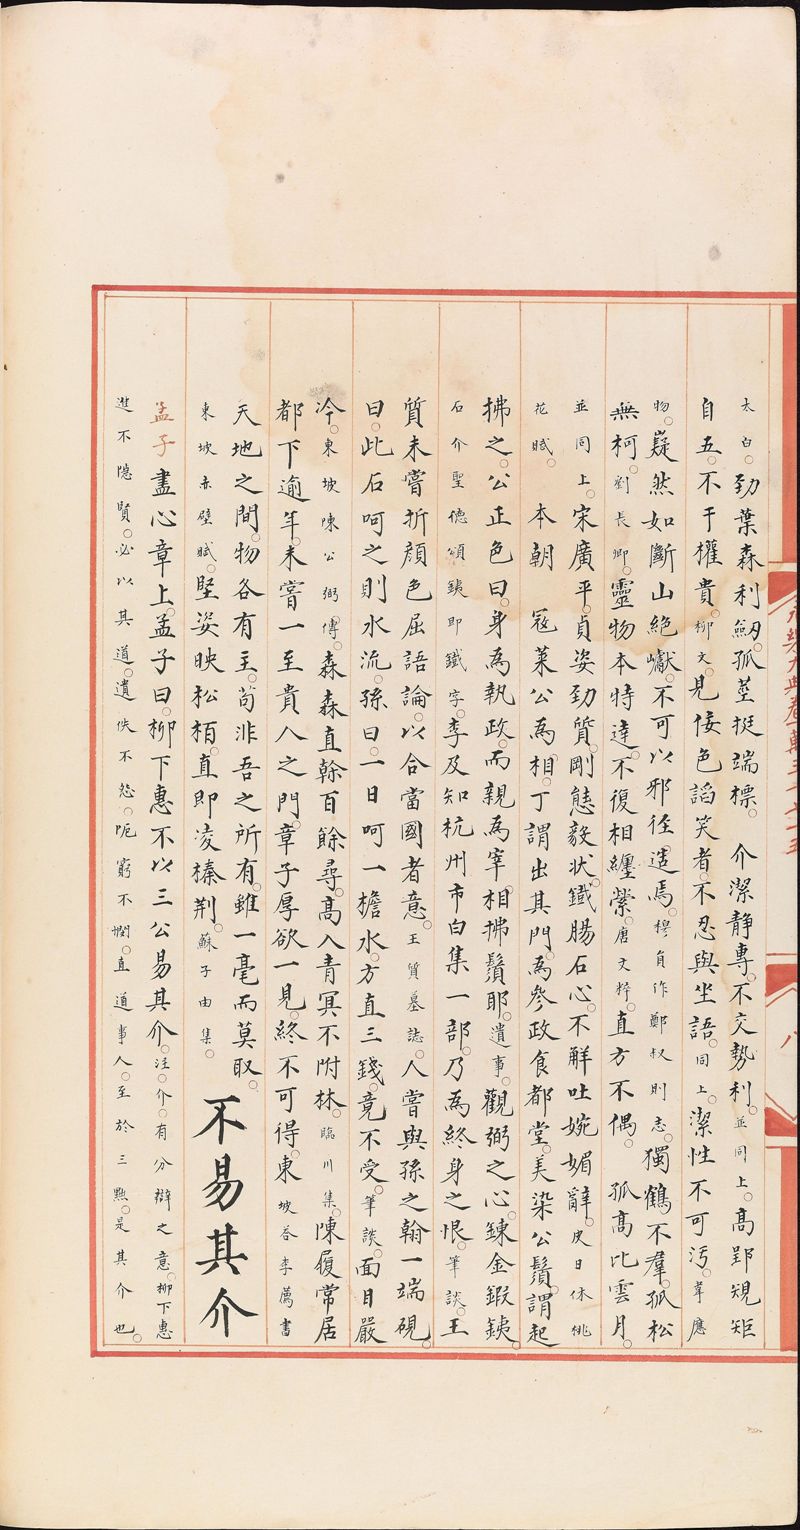 太白。勁葉森利劒。孤莖挺端標。　介潔静專。不交勢利。並同上。高郢規矩
自五。不干權貴。柳文。見佞色諂笑者。不忍與坐語。同上。潔性不可汚。韋應
物。嶷然如斷山絶巘。不可以邪徑迴焉。穆負作鄭叔則志。獨鶴不羣。孤松
無柯。劉長卿。靈物本特達。不復相纏縈。唐文粹。直方不偶。　孤高比雲月。
並同上。宋廣平。貞姿勁質。剛態毅状。鐵腸石心。不解吐婉媚辭。皮日休桃
花賦。　本朝　冦萊公為相。丁謂出其門。為參政。食都堂。羙染公鬚。謂起
拂之。公正色曰。身為執政。而親為宰相拂鬚耶。遺事。觀弼之心。鍊金鍛銕。
石介聖德頌銕即鐵字。李及知杭州。市白集一部。乃為終身之恨。筆談。王
質未嘗折顔色屈語論。以合當國者意。王質墓誌。人嘗與孫之翰一端硯。
曰。此石呵之則水流。孫曰。一日呵一檐水。方直三錢。竟不受。筆談。面目嚴
冷。東坡陳公弼傳。森森直榦百餘尋。高入青冥不附林。臨川集。陳履常居
都下逾年。未嘗一至貴人之門。章子厚欲一見。終不可得。東坡荅李廌書
天地之間。物各有主。苟非吾之所有。雖一毫而莫取。
東坡赤壁賦。堅姿映松栢。直即凌榛荆。蘇子由集。　不易其介
孟子盡心章上。孟子曰。栁下惠不以三公易其介。注。介。有分辯之意。栁下惠
進不隱賢。必以其道。遺佚不怨。阨窮不憫。直道事人。至於三黜。是其介也。
八